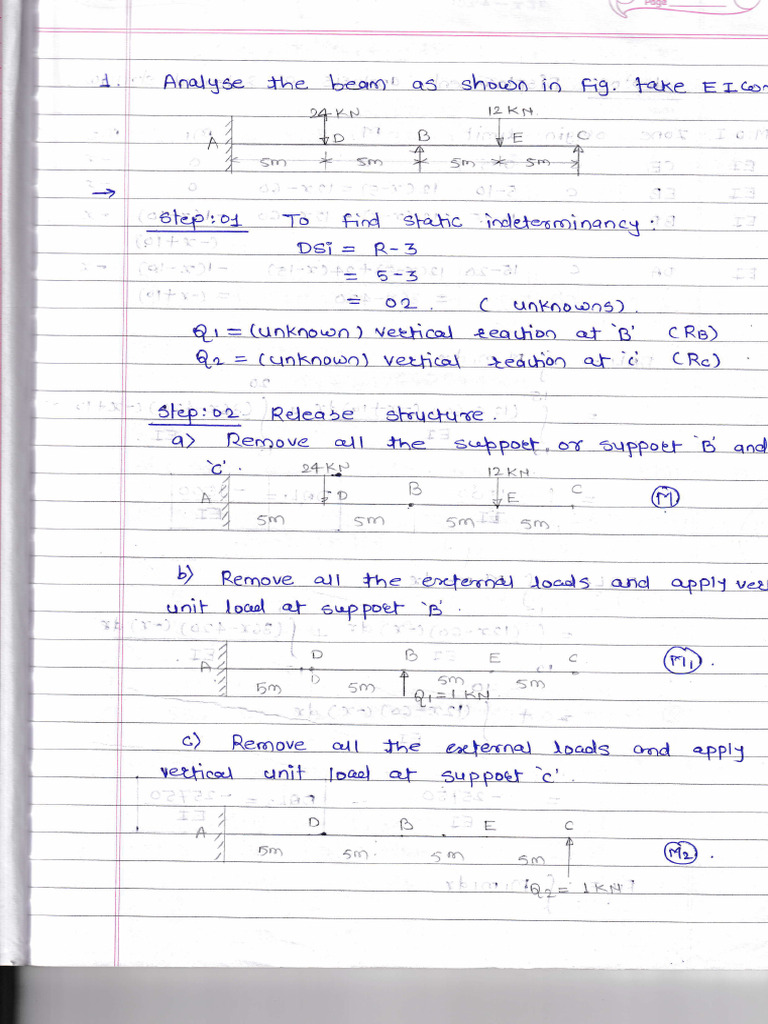 Page
1. Analyse the beam as shown in fig. take EI con
24 KN 12 KN
A D B E C
5m 5m 5m 5m
→
Step:01 To find static indeterminancy:
DSi = R-3
= 5-3
= 02. ( unknowns).
Q1 = (unknown) vertical reaction at 'B' (RB)
Q2 = (unknown) vertical reaction at 'c' (Rc)
Step:02 Release structure.
a) Remove all the support, or support 'B' and
'C'. 24 KN 12 KN
A D B E C M
5m 5m 5m 5m
b) Remove all the external loads and apply ver
unit load at support 'B'.
A D B E C M1.
D
5m 5m 5m 5m
Q1 = 1 KN
c) Remove all the external loads and apply
vertical unit load at support 'c'.
A D B E C
5m 5m 5m 5m M2.
Q2 = 1 KN